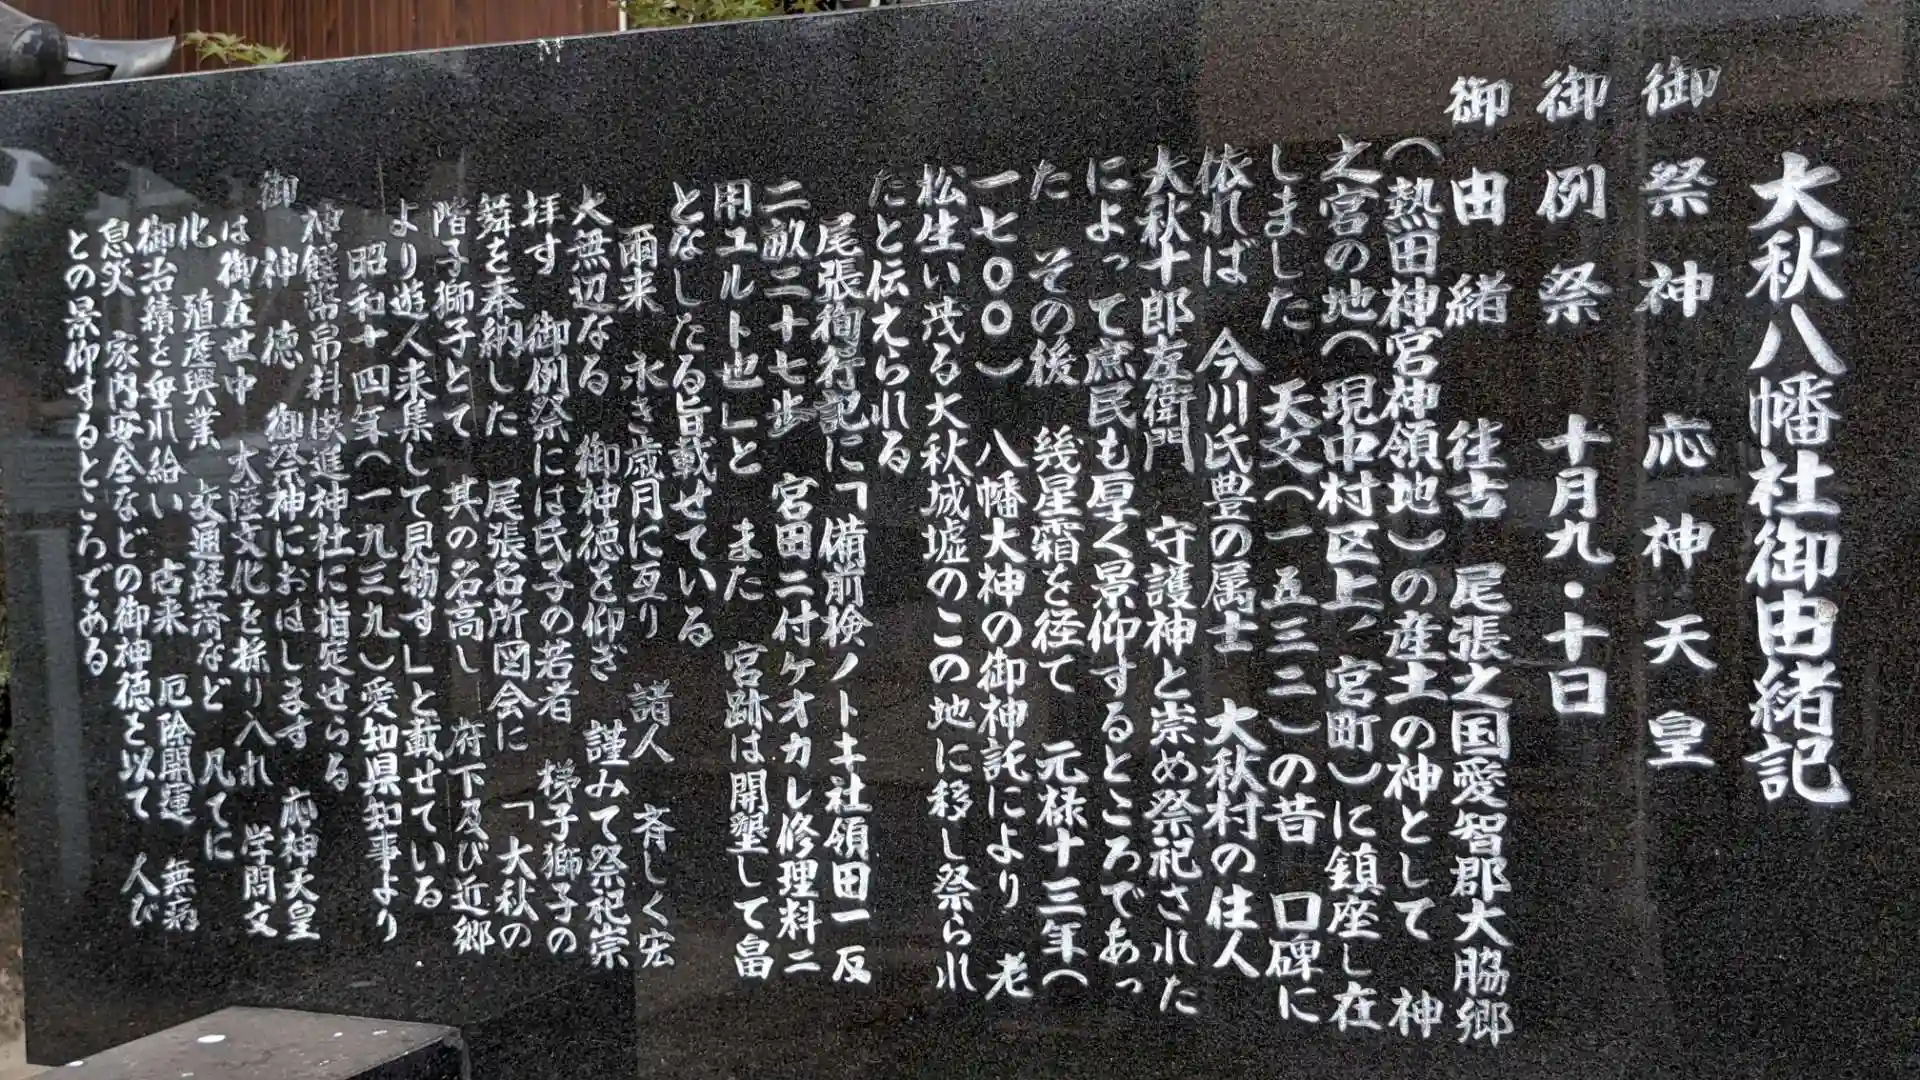 大秋八幡社御由緒記
御祭神 応神天皇
御例祭 十月九・十日
御由緒 往古 尾張之国愛智郡大脇郷
(熱田神宮神領地)の産土の神として 神
之宮の地(現中村区上、宮町)に鎮座し在
しました 天文(一五三二)の昔 口碑に
依れば 今川氏豊の属士 大秋村の住人
大秋十郎左衛門 守護神と崇め祭祀された
によって庶民も厚く景仰するところであっ
た その後 幾星霜を径て 元禄十三年(
一七〇〇) 八幡大神の御神託により 老
松生い茂る大秋城墟のこの地に移し祭られ
たと伝えられる
尾張徇行記に「備前検ノトキ社領田一反
二畝二十七歩 宮田二付ケオカレ修理料ニ
用ユルト也」と また 宮跡は開墾して畠
となしたる旨載せている
爾来 永き歳月に亙り 諸人 斉しく宏
大無辺なる 御神徳を仰ぎ 謹みて祭祀崇
拝す 御例祭には氏子の若者 梯子獅子の
舞を奉納した 尾張名所図会に 「大秋の
階子獅子とて 其の名高し 府下及び近郷
より遊人来集して見物す」と載せている
昭和十四年(一九三九)愛知県知事より
神饌幣帛料供進神社に指定せらる
御神徳 御祭神におはします 応神天皇
は御在世中 大陸文化を採り入れ 学問文
化 殖産興業 交通経済など 凡てに
御治績を垂れ給い 古来 厄除開運 無病
息災 家内安全などの御神徳を以て 人び
との景仰するところである